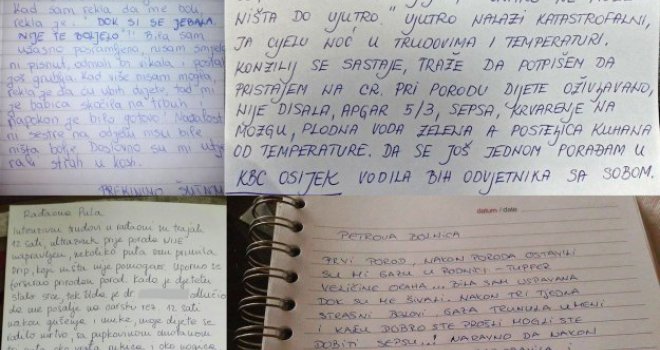 Kad sam rekla da me boli,
rekla je: "DOK SI SE JEBALA
NIJE TE BOLJELO"! Bila sam
užasno posramljena, nisam smjela
ni pisnut, odmah bi vikala i postala
još grublja. Kad više nisam mogla,
rekla je da ću ubit dijete, tad mi
je babica skočila na trbuh i
napokon je bilo gotovo! Nažalost
ni sestre na odjelu nisu bile
ništa bolje. Doslovno su mi utje
rali strah u kosti.
PREKINIMO ŠUTNJU
NIŠTA DO UJUTRO." UJUTRO NALAZI KATASTROFALNI,
JA CIJELU NOĆ U TRUDOVIMA I TEMPERATURI.
KONZILIJ SE SASTAJE, TRAŽE DA POTPIŠEM DA
PRISTAJEM NA CR. PRI PORODU DIJETE OŽIVLJAVANO,
NIJE DISALA, APGAR 5/3, SEPSA, KRVARENJE NA
MOZGU, PLODNA VODA ZELENA A POSTELJICA KUHANA
OD TEMPERATURE. DA SE JOŠ JEDNOM PORAĐAM U
KBC OSIJEK VODILA BIH ODVJETNIKA SA SOBOM.
Rađaona Pula
Intenzivni trudovi u rađaoni su trajali
12 sati, ultrazvuk prije poroda NIJE
napravljen, nekoliko puta sam primila
drip, koji ništa nije pomogao. Uporno se
forsirao prirodan porod. Kada je djetetu
slabo srce, tek tada je dr. odlučio
da me pošalje na carski rez. 12 sati
nakon gušenja i muke, moje dijete se
rodilo mrtvo, sa pupkovinom omotanom
datum / date
PETROVA BOLNICA
PRVI POROD, NAKON PORODA OSTAVILI
SU MI GAZU U RODNICI - TUPFER
VELIČINE ORAHA... BILA SAM USPAVANA
DOK SU ME ŠIVALI. NAKON TRI TJEDNA
STRAŠNI BOLOVI. GAZA TRUNULA U MENI
I KAŽU DOBRO STE PROŠLI MOGLI STE
DOBITI SEPSU...! NARAVNO DA NAKON